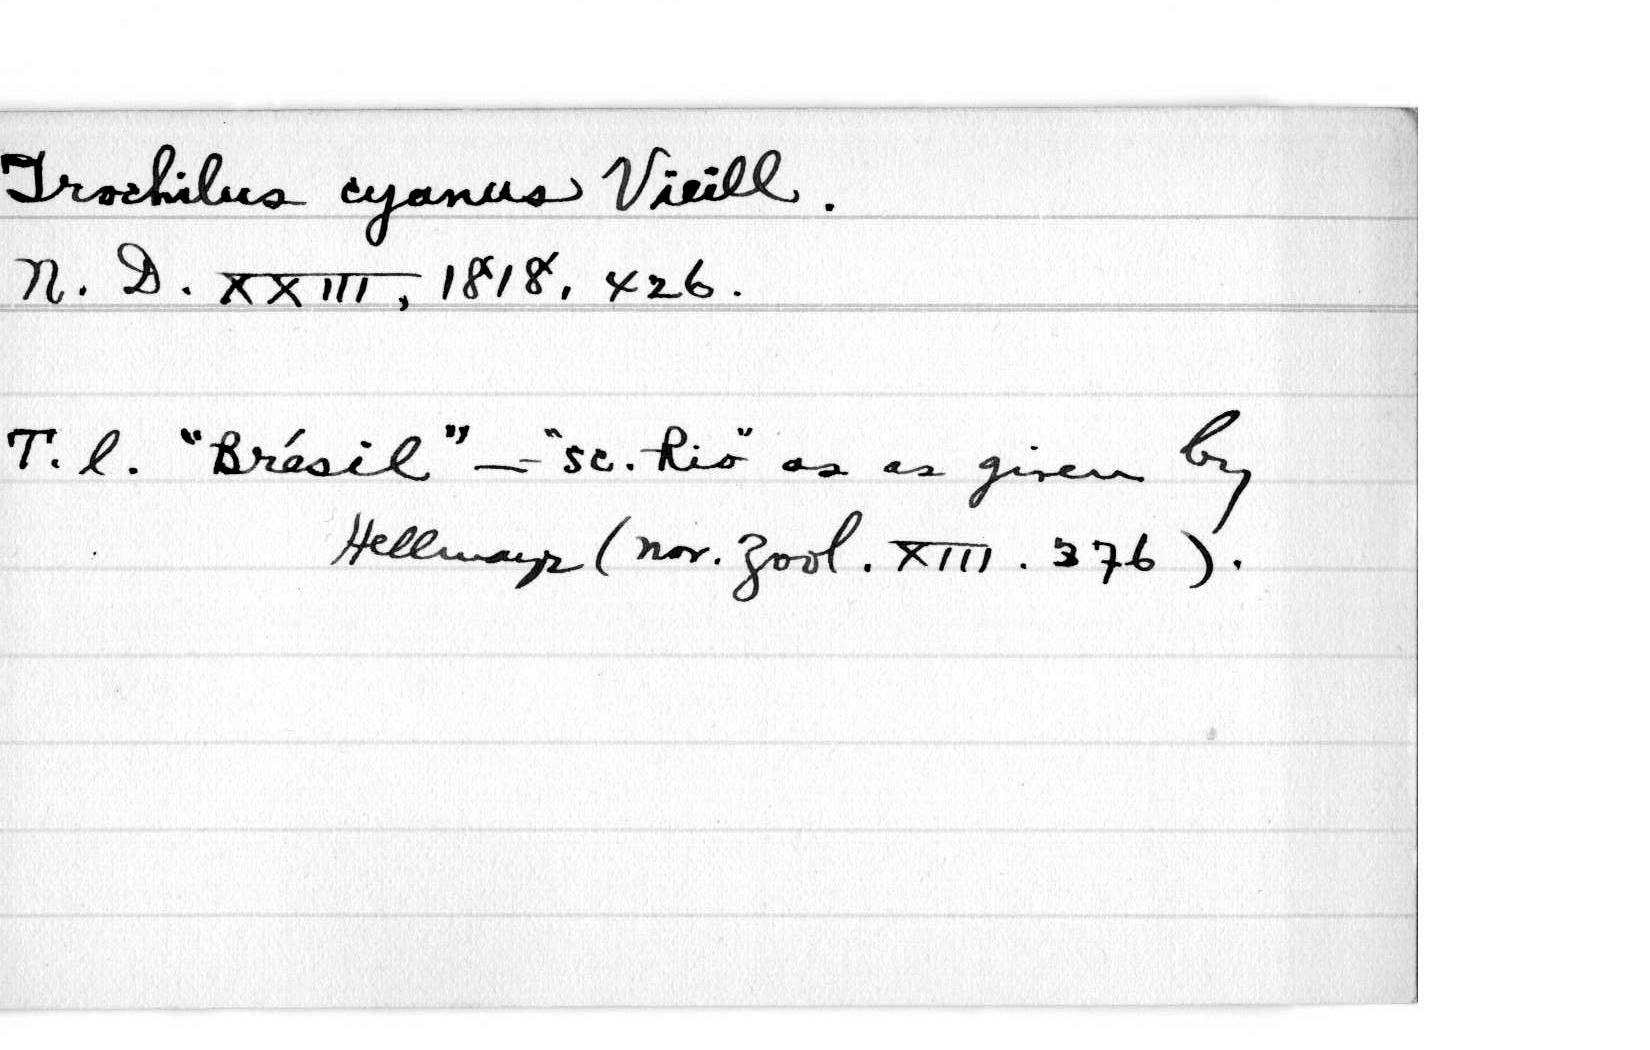 Trochilus cyanus Vieill.
N. D. XXIII, 1818, 426.
T. l. "Brésil" — "sc. Rio" as as given by
Hellmayr (Nov. Zool. XIII. 376).